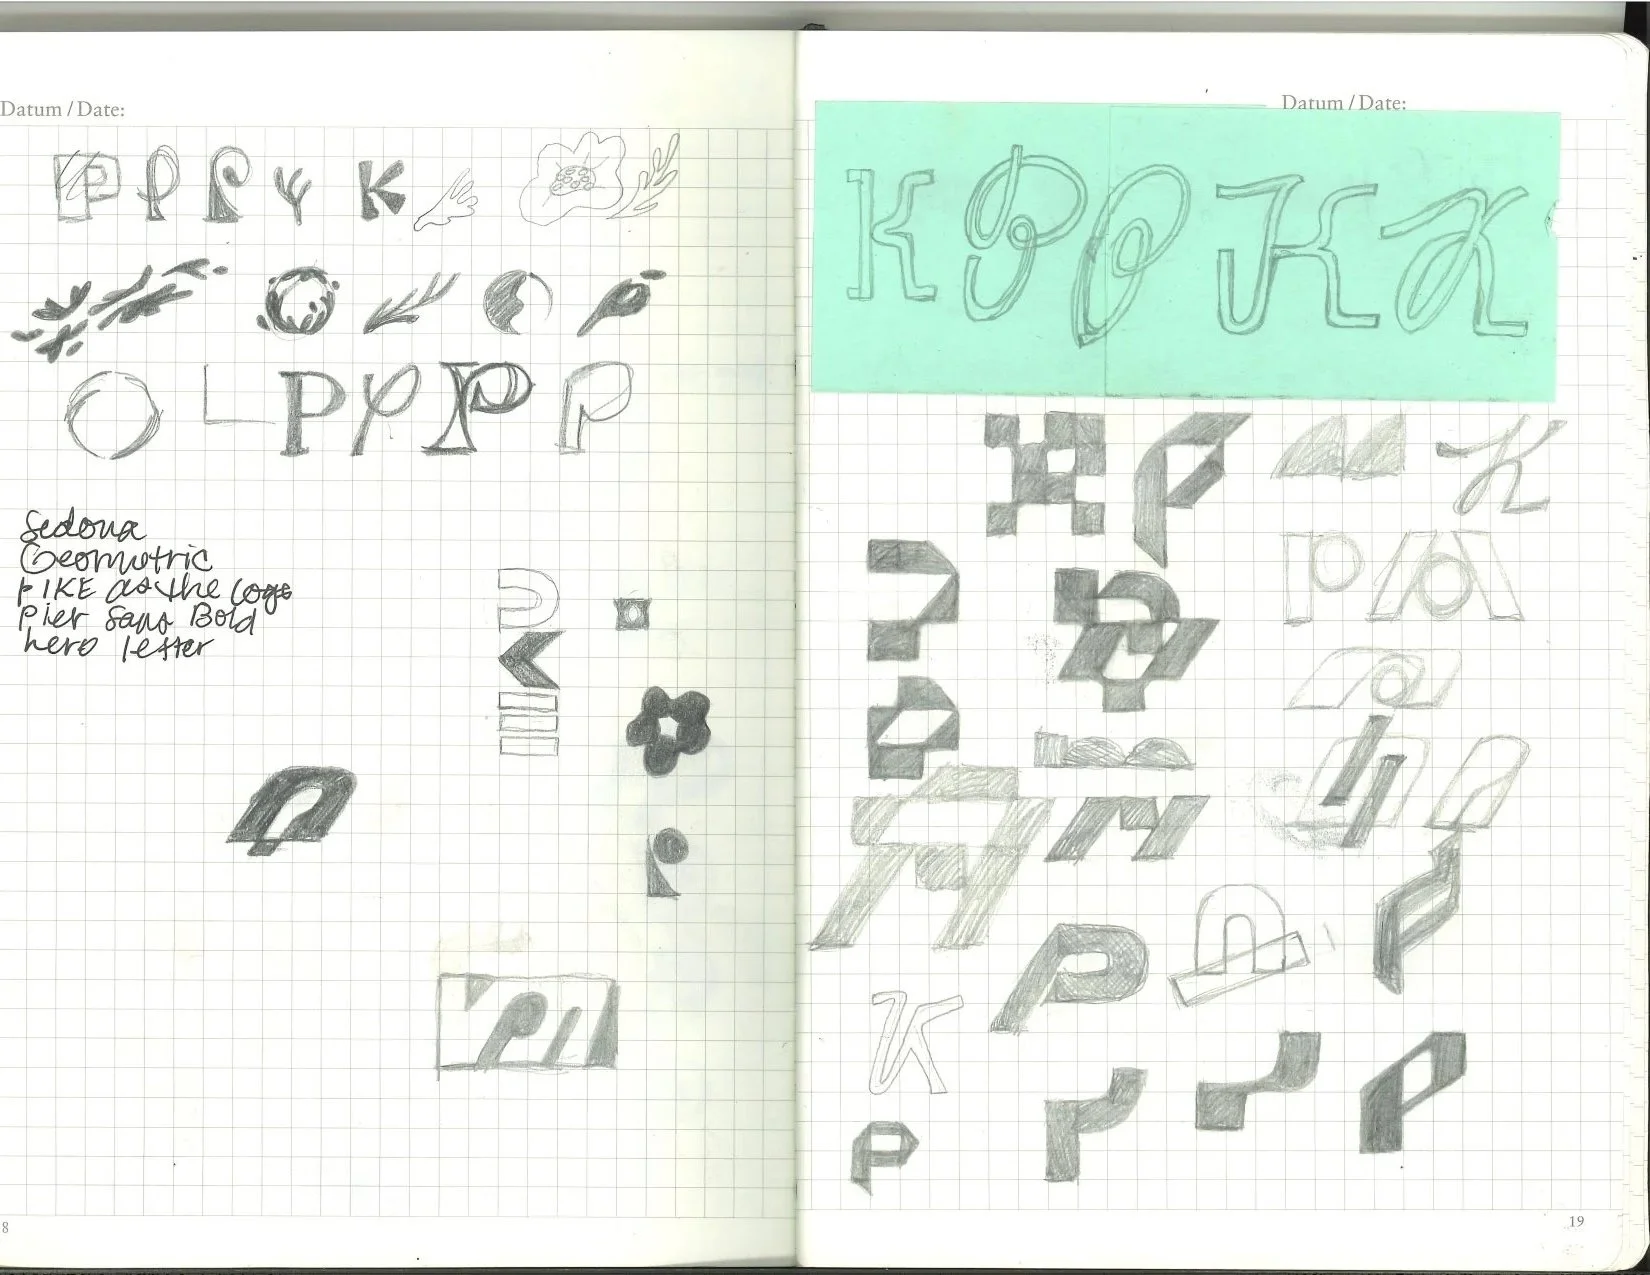 Datum / Date:
P P P Y K
L P P P P
Sedona
Geometric
PIKE as the logo
Pier Sans Bold
hero letter
8
Datum / Date:
K P P K K
K
P
K
P
P
19